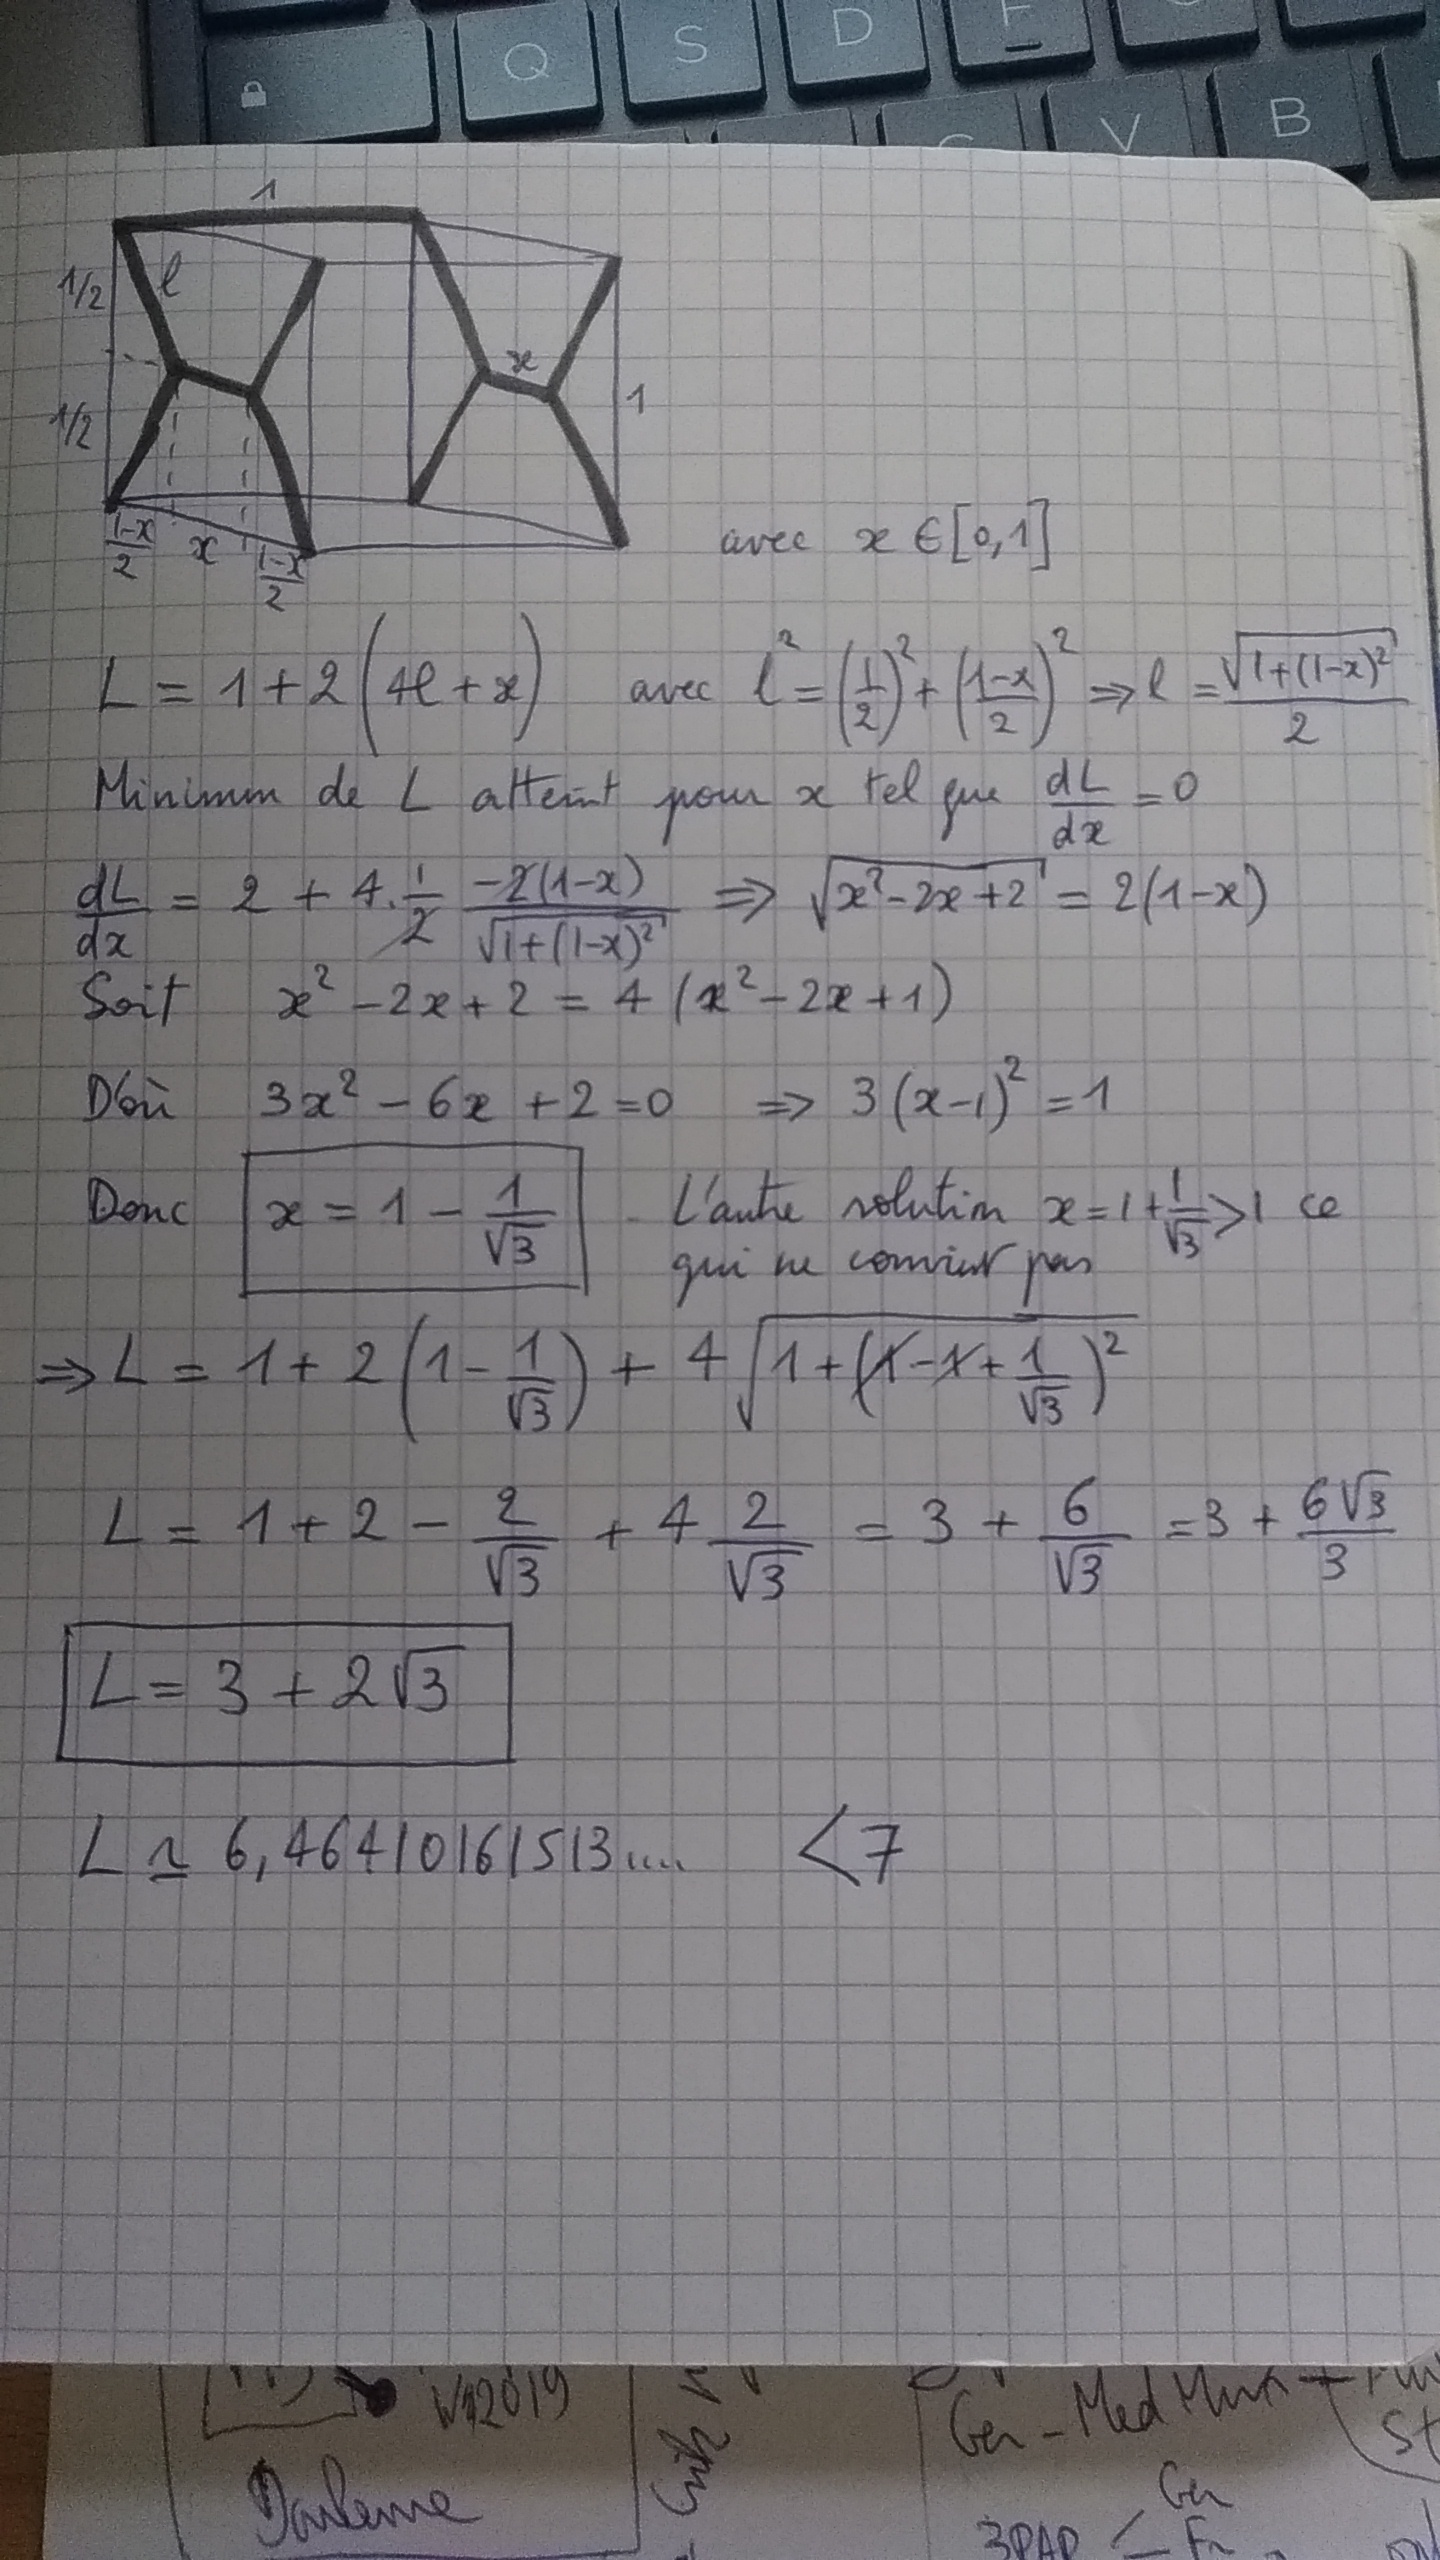 Q S D F
V B
1
1/2 l
x
1/2 1
(1-x)/2 x (1-x)/2
avec x ∈ [0,1]
L = 1 + 2(4l + x) avec l² = (1/2)² + ((1-x)/2)² ⇒ l = √(1+(1-x)²)/2
Minimum de L atteint pour x tel que dL/dx = 0
dL/dx = 2 + 4·1/2 · -2(1-x)/√(1+(1-x)²) ⇒ √(x²-2x+2) = 2(1-x)
Soit x² - 2x + 2 = 4(x² - 2x + 1)
D'où 3x² - 6x + 2 = 0 ⇒ 3(x-1)² = 1
Donc x = 1 - 1/√3 . L'autre solution x = 1 + 1/√3 > 1 ce
qui ne convient pas
⇒ L = 1 + 2(1 - 1/√3) + 4√(1 + (1 - 1 + 1/√3)²)
L = 1 + 2 - 2/√3 + 4 2/√3 = 3 + 6/√3 = 3 + 6√3/3
L = 3 + 2√3
L ≃ 6,46410161513.... < 7
Ger - Med
Ger
3PAP